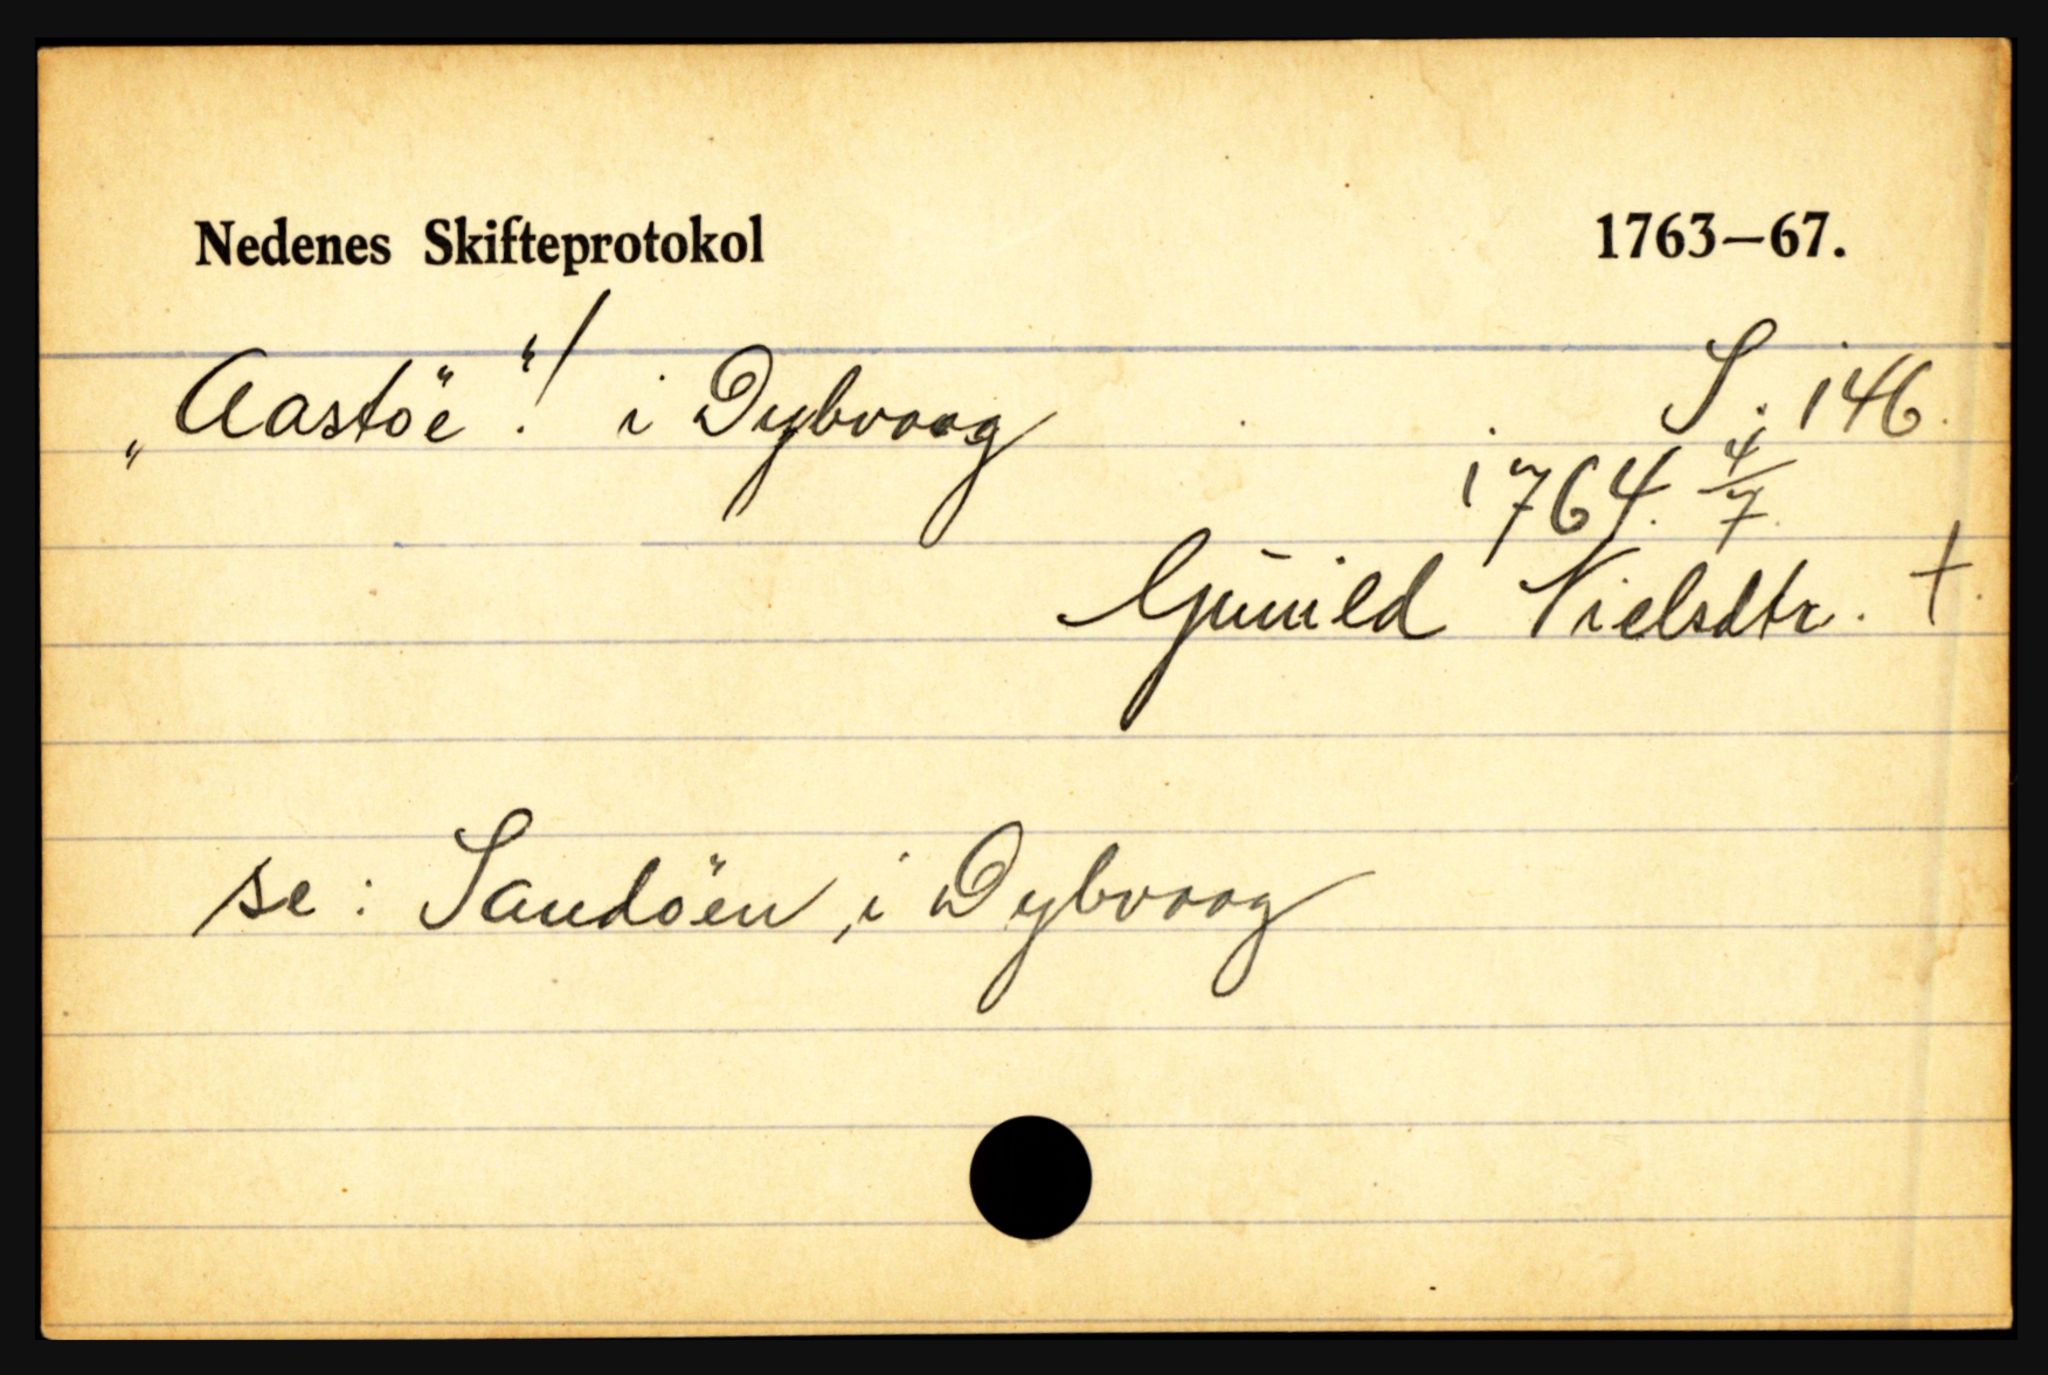 Nedenes Skifteprotokol 1763–67.
„Aastöe“! i Dybvaag S. 146.
1764. 4/7.
Gun̄ild Nielsdtr. †.
se: Sandöen, i Dybvaag